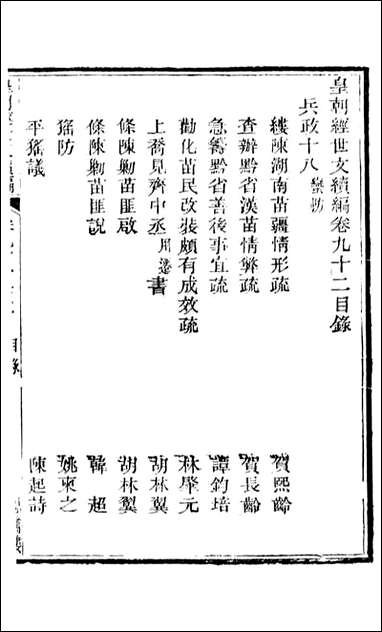 皇朝經世文續編卷九十二目錄
兵政十八 蠻防
縷陳湖南苗疆情形疏 賀熙齡
查辦黔省漢苗情弊疏 賀長齡
急籌黔省善後事宜疏 譚鈞培
勸化苗民改裝頗有成效疏 林肇元
上喬見齋中丞 書 胡林翼
條陳勦苗匪啟 胡林翼
條陳勦苗匪說 韓超
猺防 姚柬之
平猺議 陳起詩
目錄